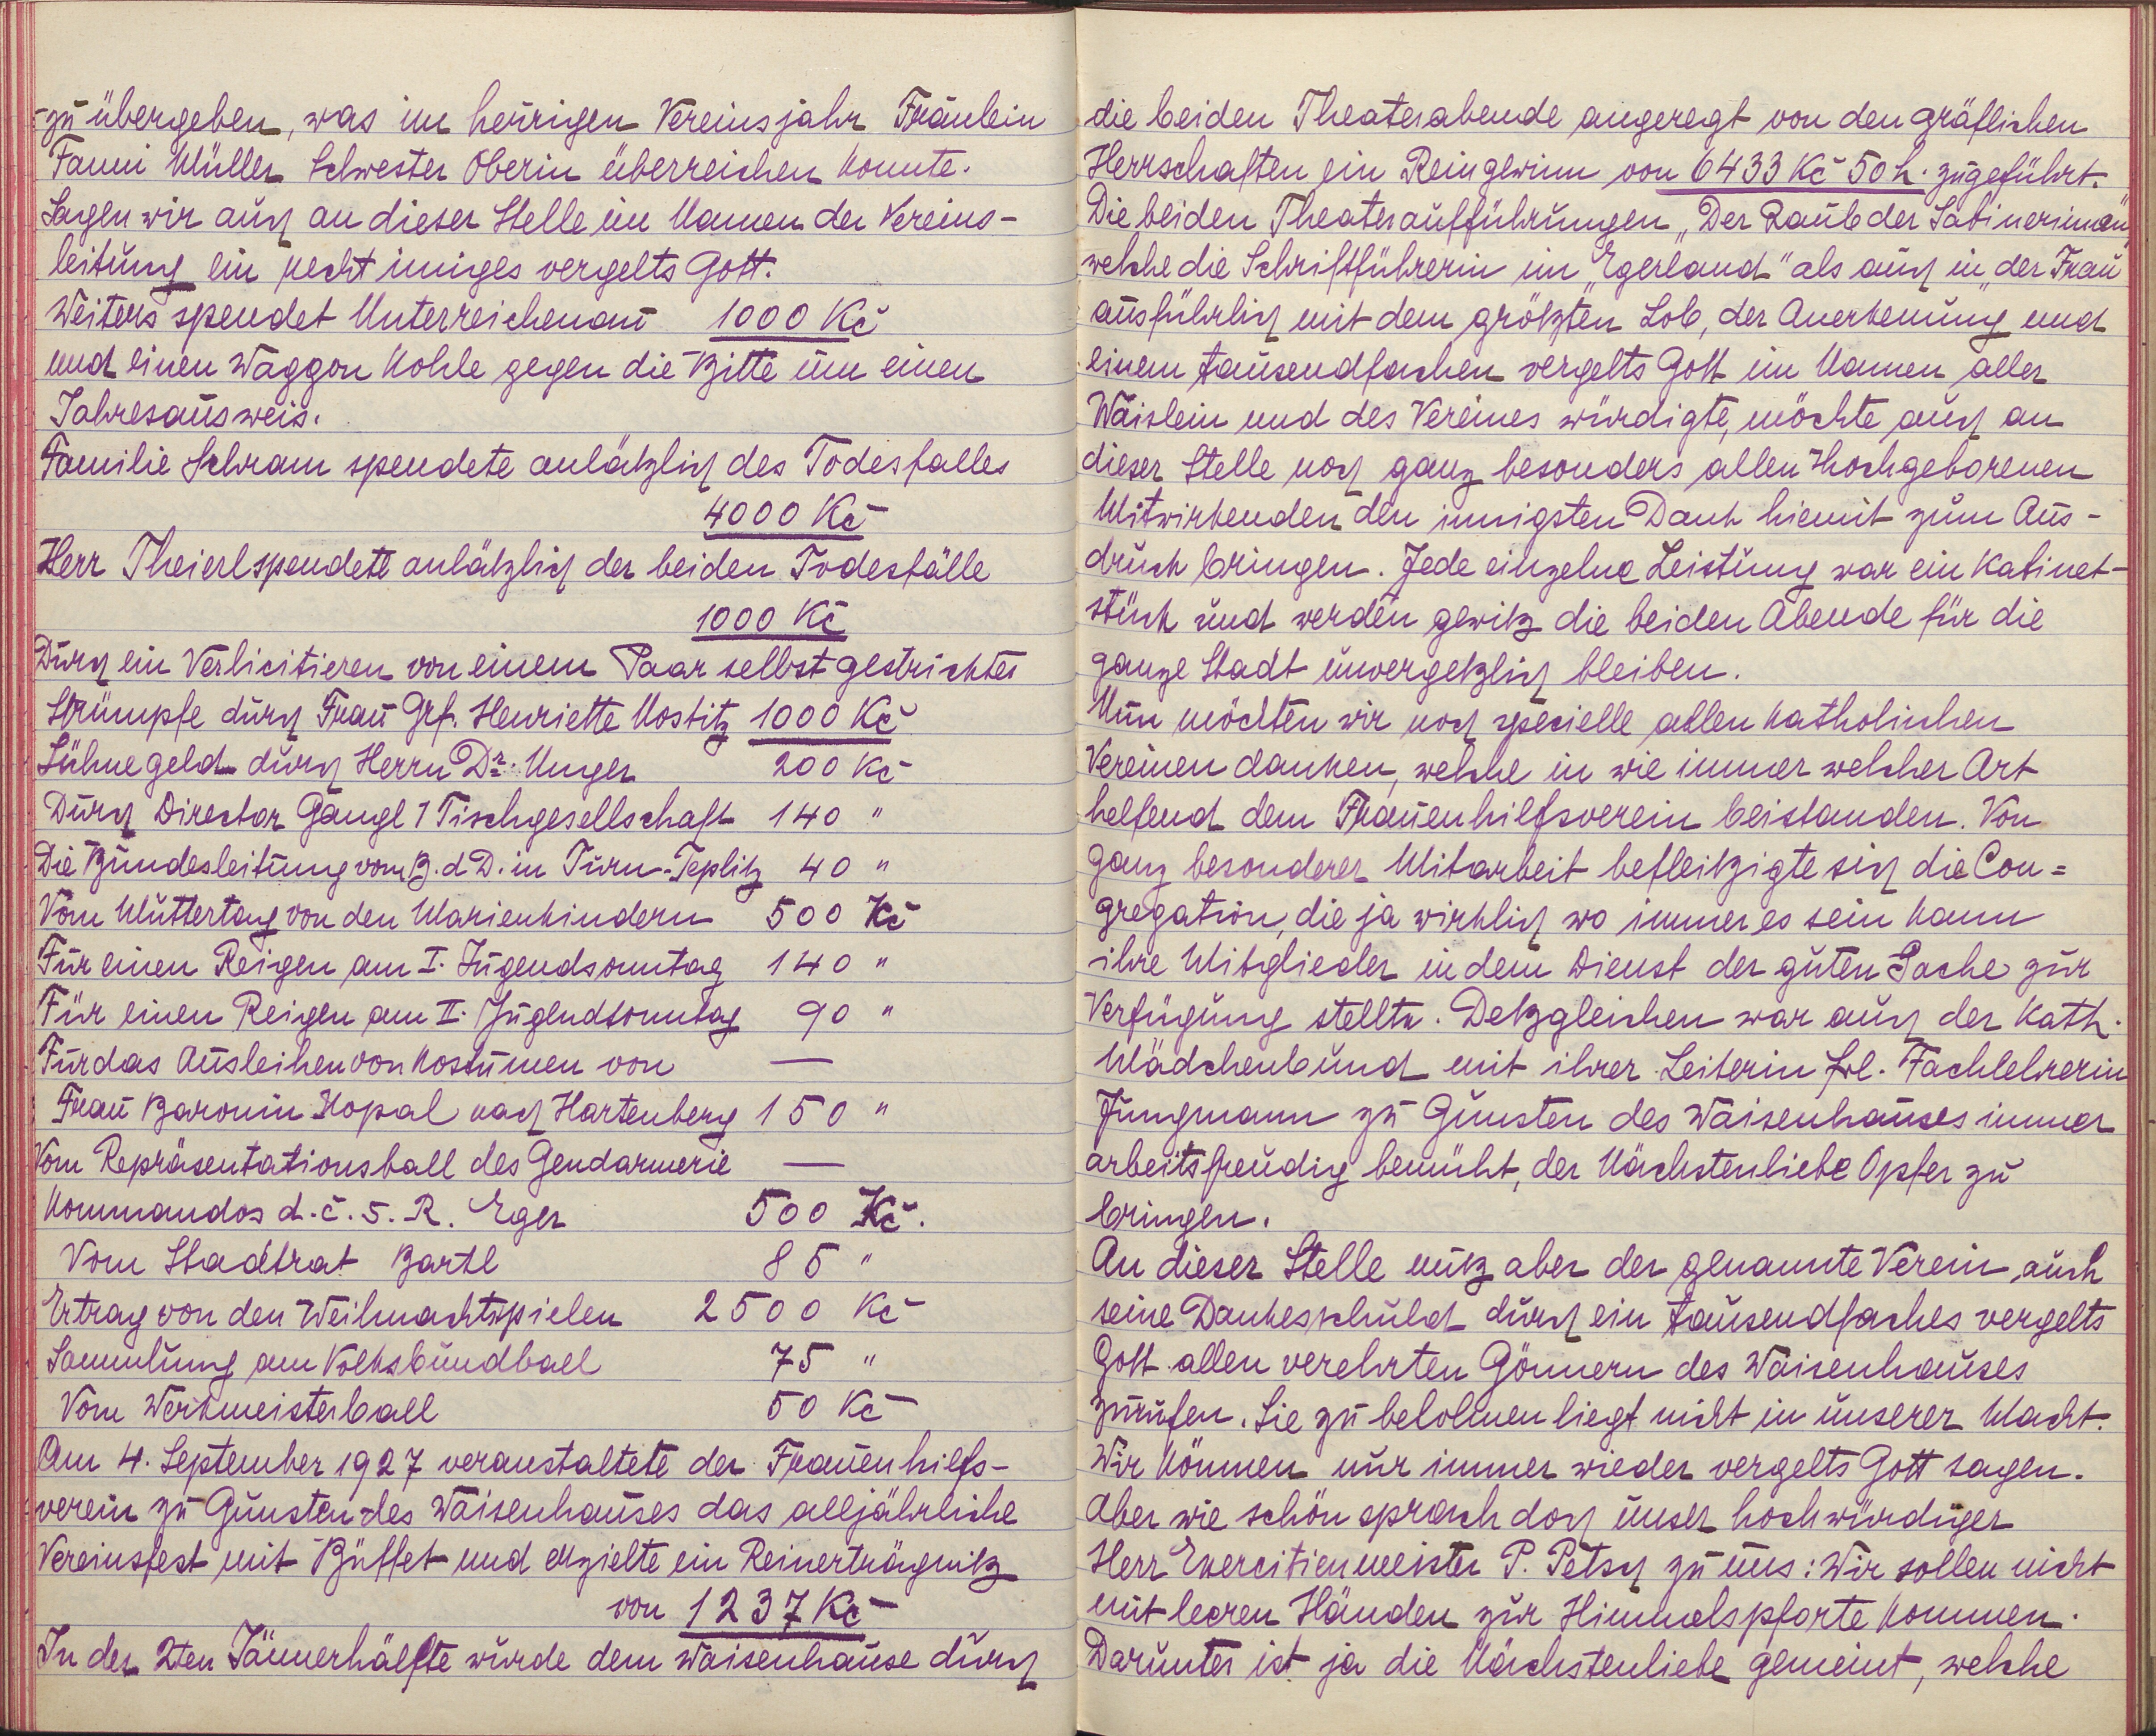 zu übergeben, was im heurigen Vereinsjahr Fräulein
Fanni Müller Schwester Oberin überreichen konnte.
Sagen wir auch an dieser Stelle im Namen der Vereins-
leitung ein recht inniges vergelts Gott.
Weiters spendet Unterreichenau 1000 Kč
und einen Waggon Kohle gegen die Bitte um einen
Jahresausweis.
Familie Schram spendete anläßlich des Todesfalles
4000 Kč
Herr Theierl spendett anläßlich der beiden Todesfälle
1000 Kč
Durch ein Verlicitieren von einem Paar selbst gestrickter
Strümpfe durch Frau Grf. Henriette Nostitz 1000 Kč
Sühnegeld durch Herrn Dr. Unger 200 Kč
Durch Director Gangl / Tischgesellschaft 140 "
Die Bundesleitung vom B. d D. in Turn-Teplitz 40 "
Vom Muttertag von den Marienkindern 500 Kč
Für einen Reigen am I. Jugendsonntag 140 "
Für einen Reigen am II. Jugendsonntag 90 "
Für das Ausleihen von Kostümen von —
Frau Baronin Kopal nach Hartenberg 150 "
Vom Repräsentationsball des Gendarmerie —
Kommandos d. č. 5. R. Eger 500 Kč.
Vom Stadtrat Bartl 85 "
Ertrag von den Weihnachtspielen 2500 Kč
Sammlung am Volksbundball 75 "
Vom Werkmeisterball 50 Kč
Am 4. September 1927 veranstaltete der Frauenhilfs-
verein zu Gunsten des Waisenhauses das alljährliche
Vereinsfest mit Büffet und erzielte ein Reinerträgniß
von 1237 Kč
In der 2ten Jännerhälfte wurde dem Waisenhause durch
die beiden Theaterabende angeregt von den gräflichen
Herrschaften ein Reingewinn von 6433 Kč 50 h. zugeführt.
Die beiden Theateraufführungen „Der Raub der Sabinerinnen"
welche die Schriftführerin im „Egerland" als auch in „der Frau"
ausführlich mit dem größten Lob, der Anerkennung und
einem tausendfachen vergelts Gott im Namen aller
Waislein und des Vereines würdigte, möchte auch an
dieser Stelle noch ganz besonders allen Hochgeborenen
Mitwirkenden den innigsten Dank hiemit zum Aus-
druck bringen. Jede einzelne Leistung war ein Kabinet-
stück und werden gewiß die beiden Abende für die
ganze Stadt unvergeßlich bleiben.
Nun möchten wir noch specielle allen katholischen
Vereinen danken, welche in wie immer welcher Art
helfend dem Frauenhilfsverein beistanden. Von
ganz besonderer Mitarbeit befleißigte sich die Con=
gregation, die ja wirklich wo immer es sein kann
ihre Mitglieder in dem Dienst der guten Sache zur
Verfügung stellte. Deßgleichen war auch der kath.
Mädchenbund mit ihrer Leiterin Frl. Fachlehrerin
Jungmann zu Gunsten des Waisenhauses immer
arbeitsfreudig bemüht, der Nächstenliebe Opfer zu
bringen.
An dieser Stelle muß aber der genannte Verein, auch
seine Dankesschuld durch ein tausendfaches vergelts
Gott allen verehrten Gönnern des Waisenhauses
zurufen. Sie zu belohnen liegt nicht in unserer Macht.
Wir können nur immer wieder vergelts Gott sagen.
Aber wie schön sprach doch unser hochwürdiger
Herr Exercitienmeister P. Petsch zu uns: Wir sollen nicht
mit leeren Händen zur Himmelspforte kommen.
Darunter ist ja die Nächstenliebe gemeint, welche